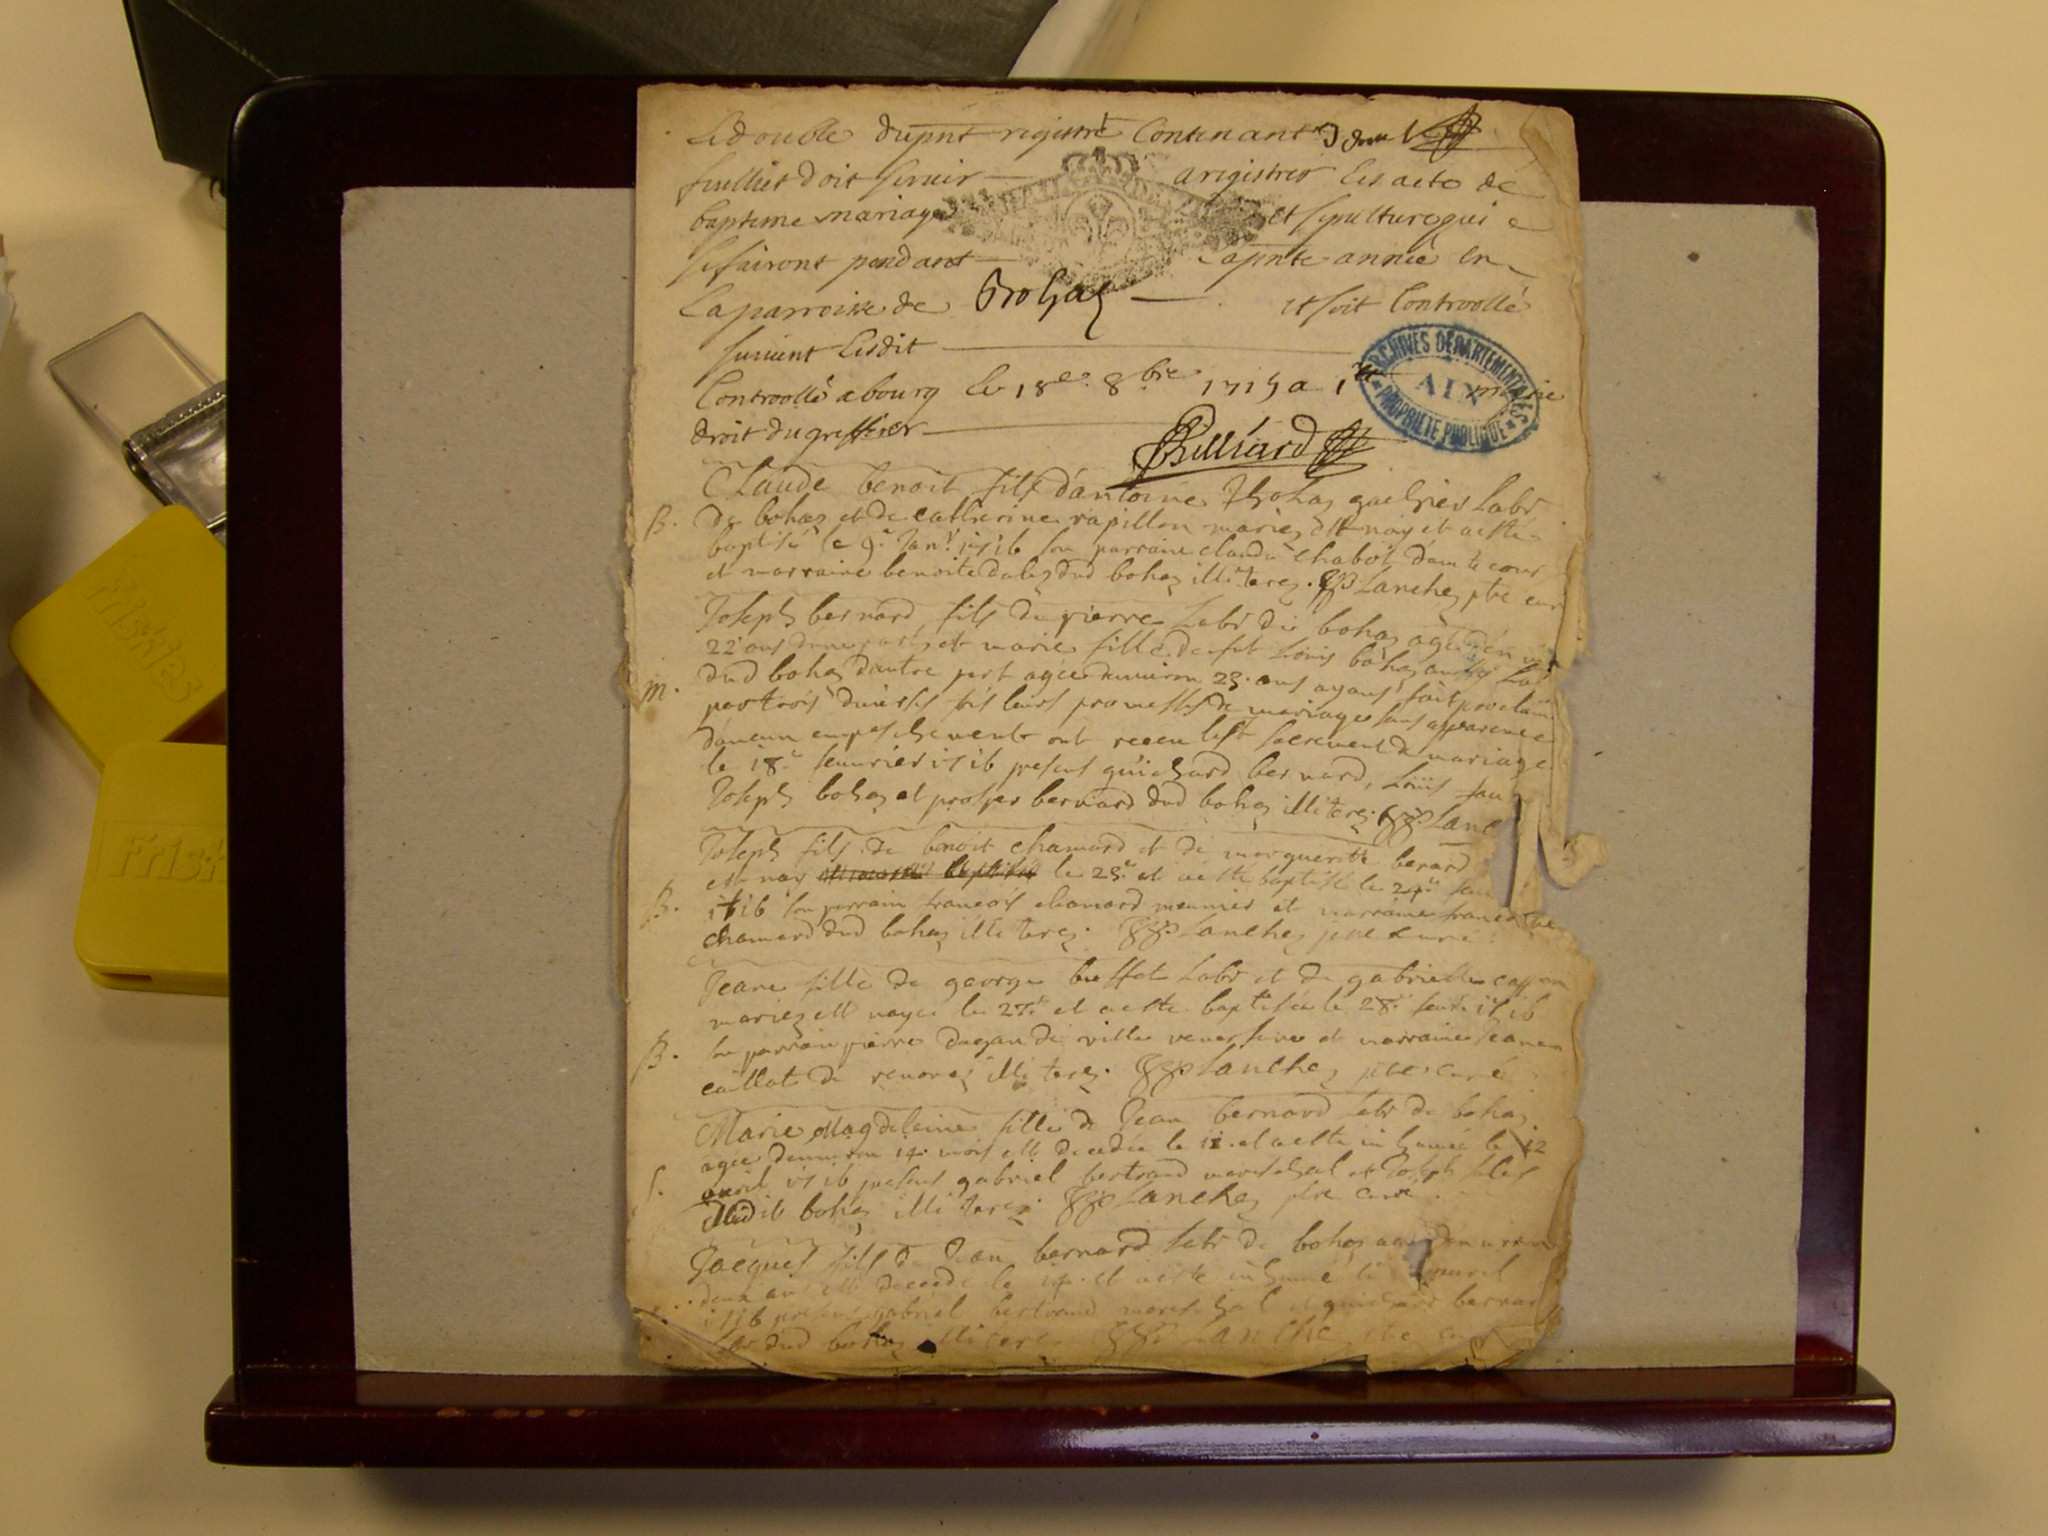 Le double du pnt registre Contenant
feulliet doit servir a registrer les acte de
bapteme mariages et sepultures qui
se fairont pendant la pnte année en
la parroisse de Bohas et soit Controollé
suivant Ledit
ARCHIVES DÉPARTEMENTALES
AIN
PROPRIÉTÉ PUBLIQUE
Controollé a bourg le 18e 8bre 1715 a
droit du greffier
Billiard
Claude benoit fils d'antoine labr
B. de bohaz et de catherine rapillon mariez est nay et a esté
baptisé le 9e Janr 1716 son parrain claude chabot
et marraine benoite dud bohaz illiterez. Lanchez ptre curé
Joseph bernard fils de pierre labr de bohaz agé
22 ans d'une part et marie fille de fut Louis bohaz
m. dud bohaz d'autre part agée d'environ 23 ans ayans fait proclam
par trois diverses fois leurs promesses de mariage sans apparence
d'aucun empeschement ont receu le st sacrement de mariage
le 18e feuvrier 1716 presens guichard bernard, Louis
Joseph bohaz et prosper bernard dud bohaz illiterez. Lanc
Joseph fils de benoit chamard et de marguerite berard
est nay le 23e et a esté baptisé le 24e
B. 1716 son parrain françois chamard meunier et marraine
chamard dud bohaz illiterez. Lanchez ptre curé
Jeane fille de george buffet labr et de gabrielle
mariez est naye le 27e et a esté baptisée le 28e 1716
B. son parrain pierre dagan de ville reversure et marraine Jeane
caillat de illiterez. Lanchez ptre curé
Marie Magdelaine fille de Jean bernard labr de bohaz
agée d'environ 14 mois est decedée le 11 et a esté inhumée le 12
S. avril 1716 presens gabriel bertrand mareschal et Joseph
dudit bohaz illiterez. Lanchez ptre curé
Jacques fils de Jean bernard labr de bohaz agé d'environ
deux ans est decedé le 14 et a esté inhumé le avril
1716 presens gabriel bertrand mareschal et guichard bernard
labr dud bohaz illiterez Lanche ptre curé